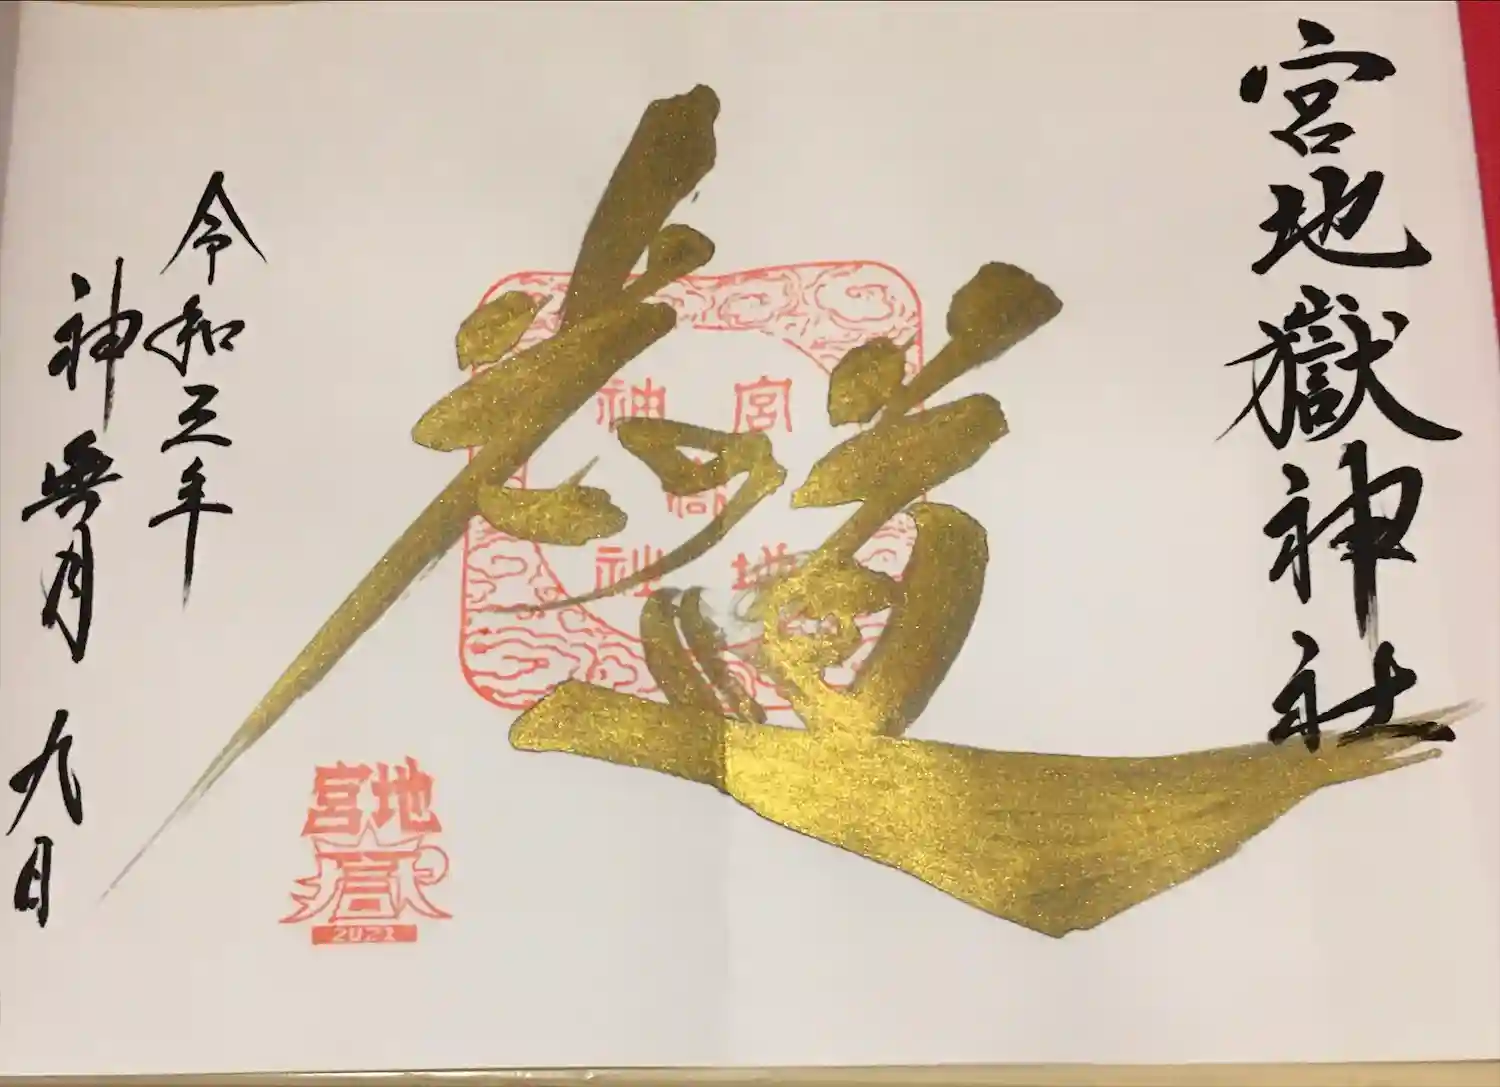 宮地嶽神社
道
宮地嶽神社
令和三年
神無月 九日
宮地嶽
2021